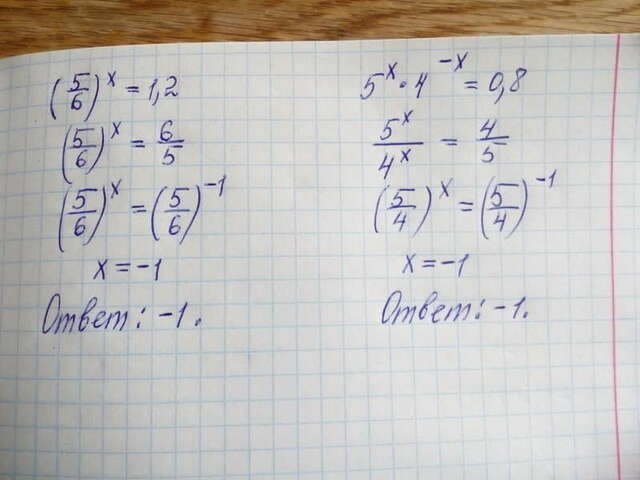 (5/6)^x = 1,2
(5/6)^x = 6/5
(5/6)^x = (5/6)^-1
x = -1
Ответ: -1.
5^x · 4^-x = 0,8
5^x/4^x = 4/5
(5/4)^x = (5/4)^-1
x = -1
Ответ: -1.